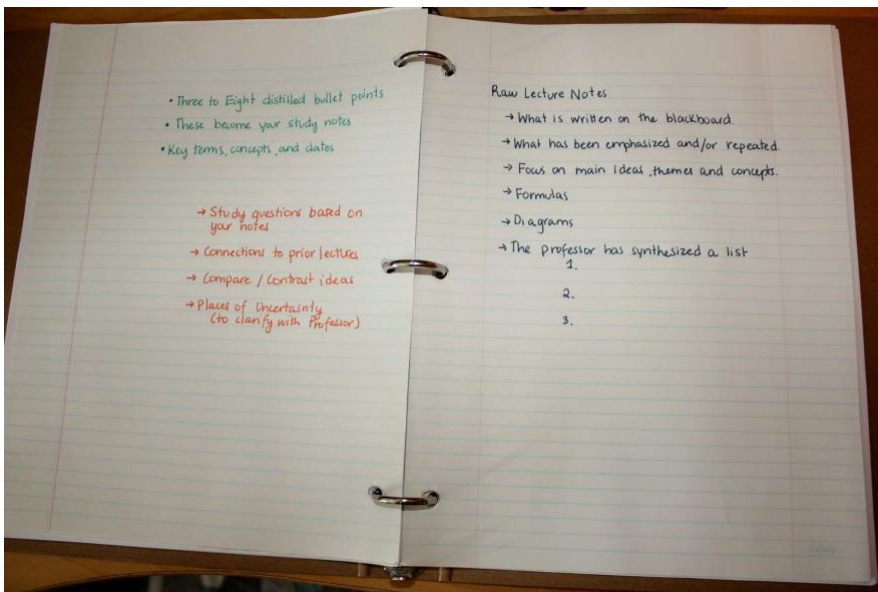 • Three to Eight distilled bullet points
• These become your study notes
• Key terms, concepts, and dates
→ Study questions based on
your notes
→ Connections to prior lectures
→ Compare / Contrast ideas
→ Places of Uncertainty
(to clarify with Professor)
Raw Lecture Notes
→ What is written on the blackboard.
→ What has been emphasized and/or repeated.
→ Focus on main ideas, themes and concepts.
→ Formulas
→ Diagrams
→ The professor has synthesized a list
1.
2.
3.